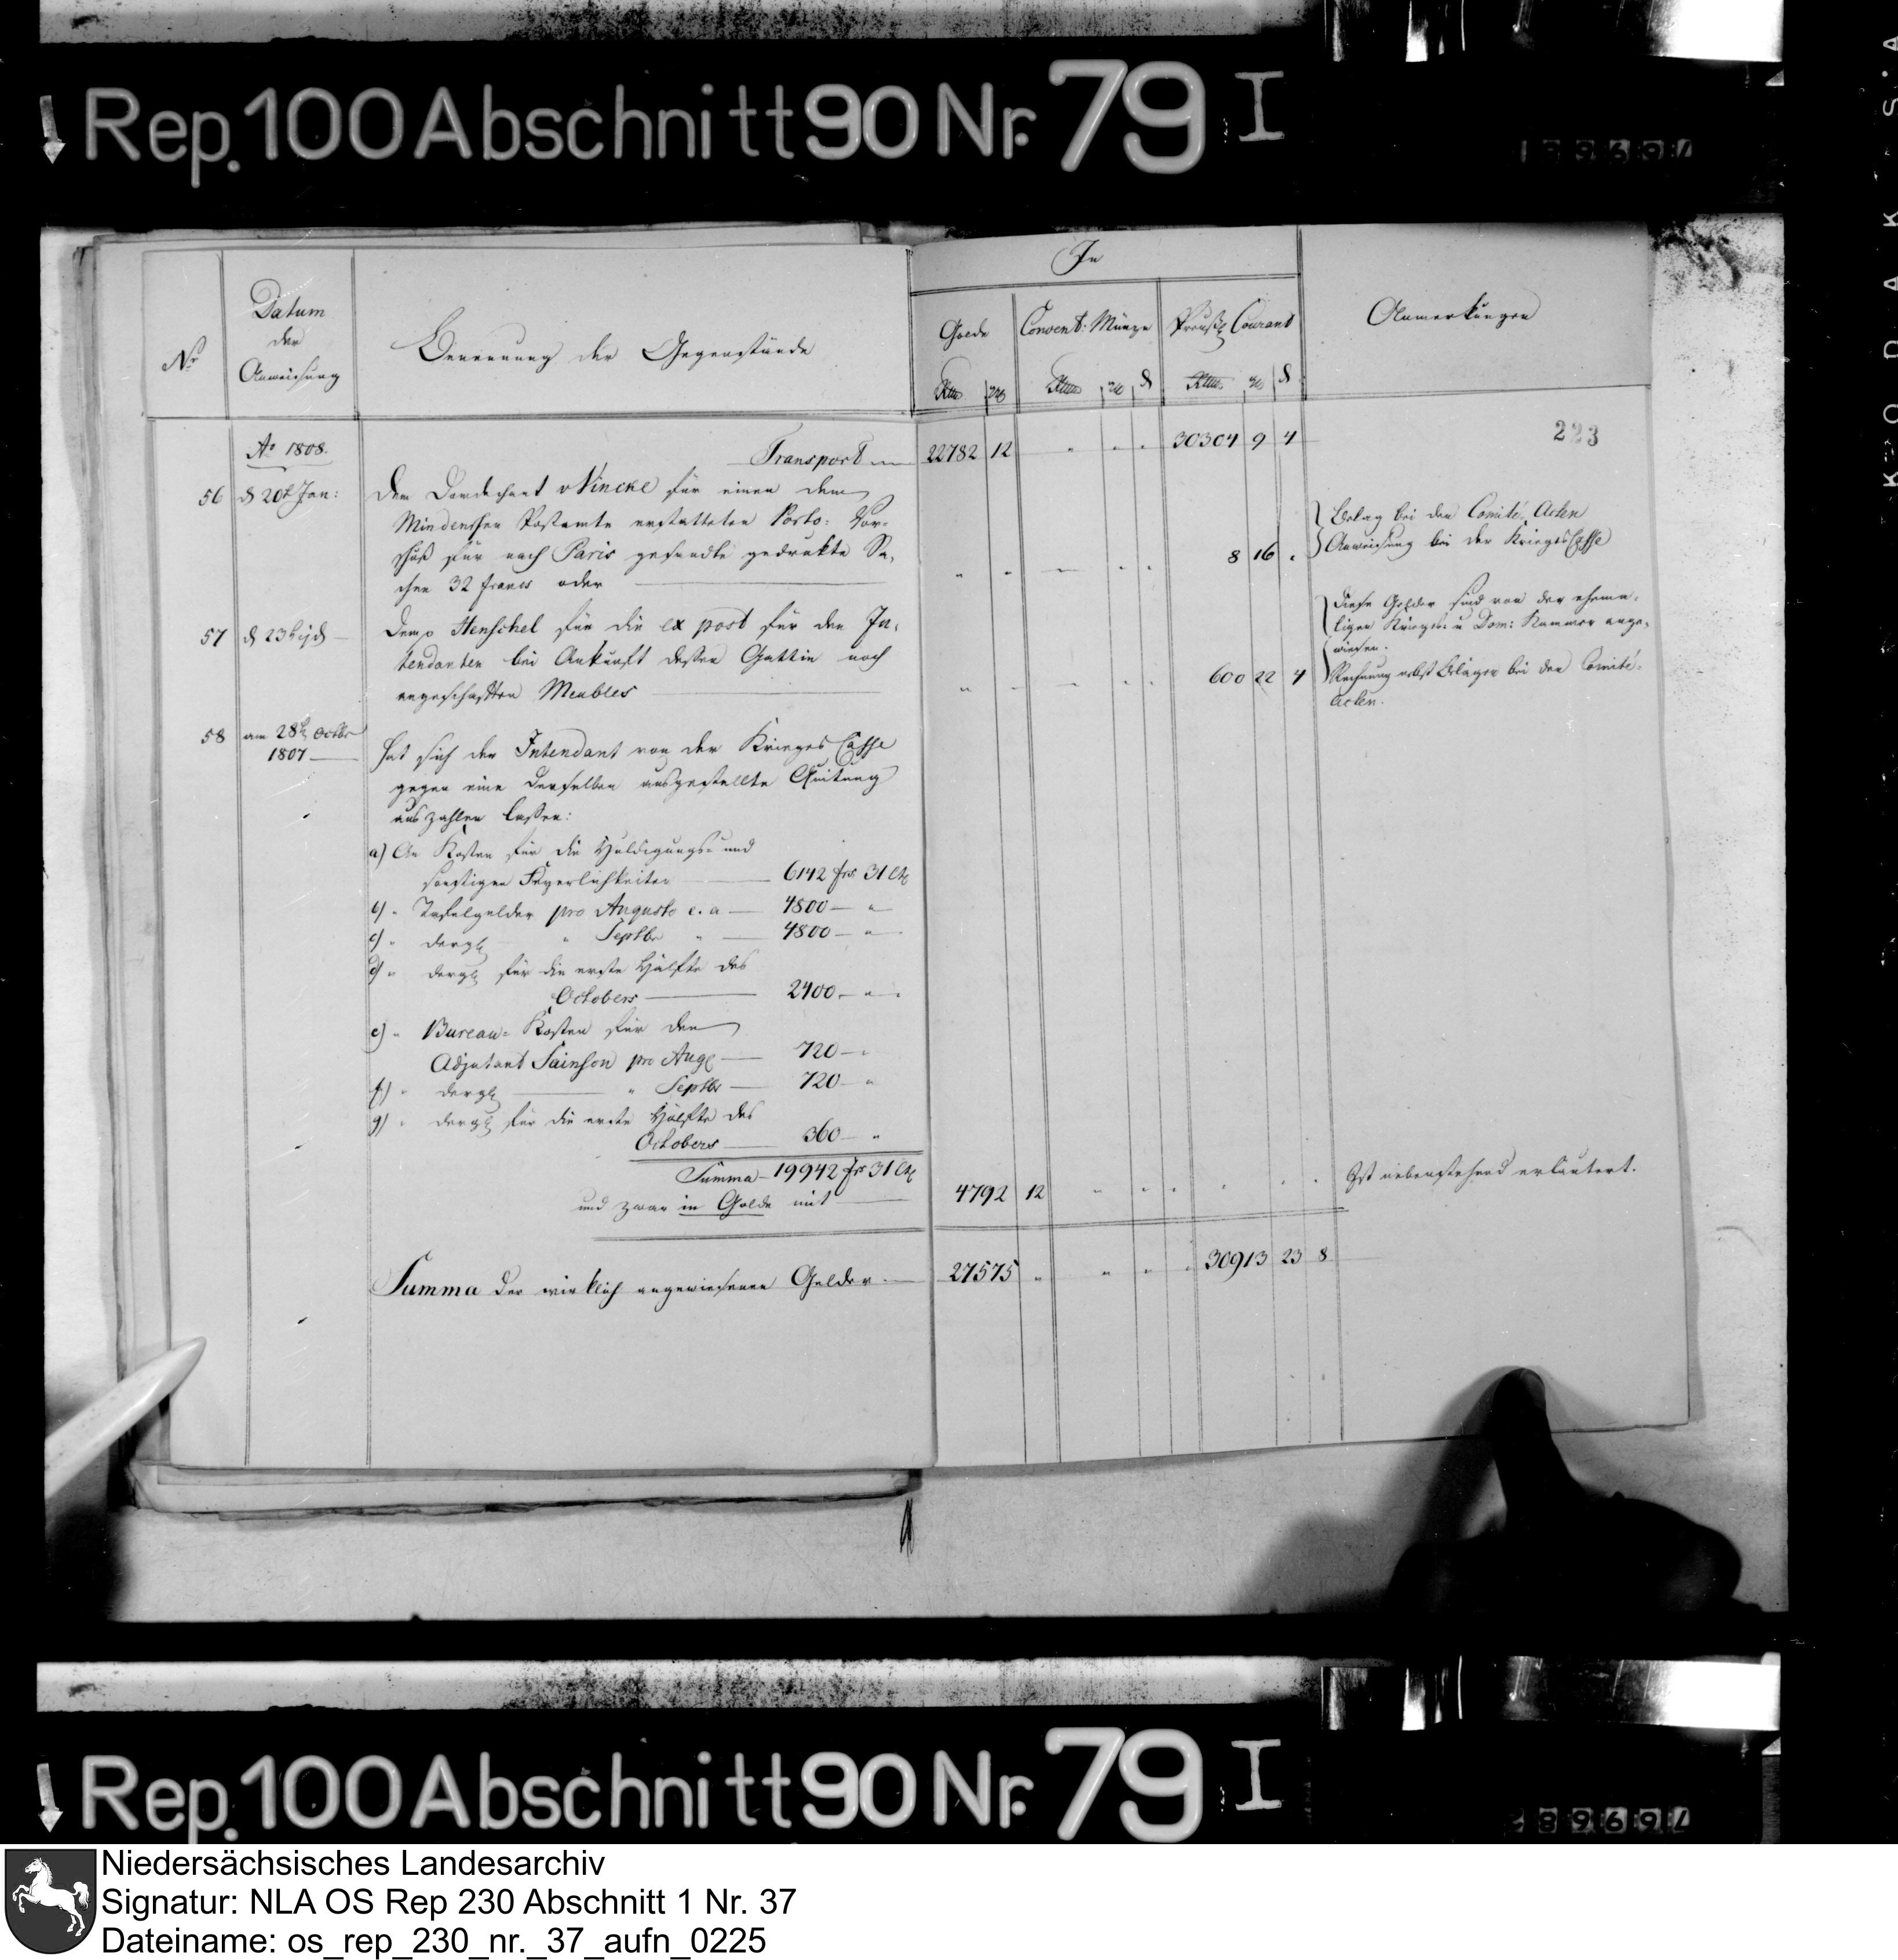 Rep. 100 Abschnitt 90 Nr. 79 I
In
No
Datum
der
Anweisung
Benennung der Gegenstände
Golde
Convent: Münze
Preuß. Courant
Anmerkungen
223
Ao 1808.
Transport 22782 12 " " " 30304 9 4
56 d 20t Jan:
Dem Domdechant v Vincke für einen dem
Mindenschen Postamte erstatteten Porto: Vor-
schuß für nach Paris gesandte gedrukte Sa-
chen 32 francs oder " " " " " 8 16 "
Belag bei den Comité Acten
Anweisung bei der Krieges Casse
57 d 23t ejd
Dem p Henschel für die ex post für den In-
tendanten bei Ankunft deßen Gattin noch
angeschafften Meubles " " " " " 600 22 4
Diese Gelder sind von der ehema-
ligen Krieges u Dom: Kammer ange-
wiesen.
Rechnung nebst Beläger bei den Comité-
Acten.
58 am 28t Octbr
1807
Hat sich der Intendant von der Krieges Casse
gegen eine derselben ausgestellte Quitung
auszahlen laßen:
a) An Kosten für die Huldigungs- und
sonstigen Feyerlichkeiten 6142 frs 31 Ct
b) " Tafelgelder pro Augusto c. a 4800 "
c) " dergl " Septbr " 4800 "
d) " dergl für die erste Hälfte des
Octobers 2400 "
e) " Bureau-Kosten für den
Adjutant Sainson pro Aug 720 "
f) " dergl " Septbr 720 "
g) " dergl für die erste Hälfte des
Octobers 360 "
Summa 19942 frs 31 Ct
und zwar in Golde mit 4792 12 " " " " " "
Ist nebenstehend erläutert.
Summa der wirklich angewiesenen Gelder 27575 " " " " 30913 23 8
Rep. 100 Abschnitt 90 Nr. 79 I
Niedersächsisches Landesarchiv
Signatur: NLA OS Rep 230 Abschnitt 1 Nr. 37
Dateiname: os_rep_230_nr._37_aufn_0225